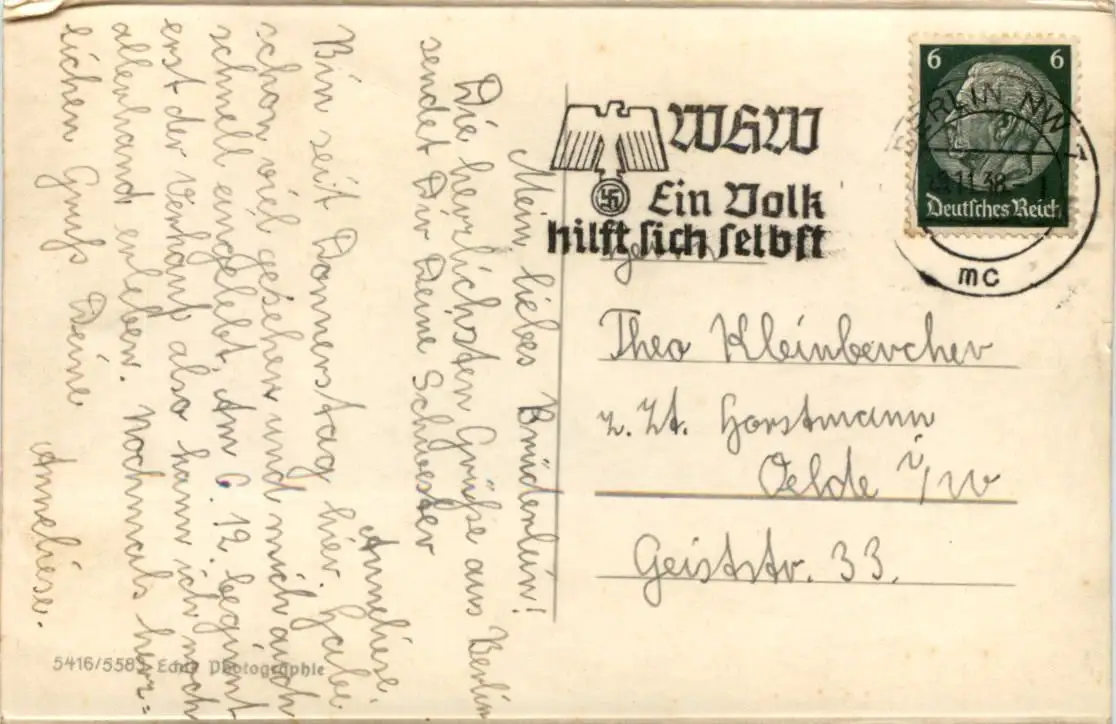 Mein liebes Brüderlein!
Die herzlichsten Grüße aus Berlin
sendet Dir Deine Schwester
Anneliese
Bin seit Donnerstag hier. Habe
schon viel gesehen und mich auch
schnell eingelebt. Am 6. 12. beginnt
erst der Verhand also kann ich noch
allerhand erleben. Nochmals herz=
lichen Gruß Deine
Anneliese.
5416/5583 Echte Photographie
WHW
Ein Volk
hilft sich selbst
6 6
Deutsches Reich
BERLIN NW 7
11.38
mc
Theo Kleinbercher
z. Zt. Horstmann
Oelde i/W
Geiststr. 33.